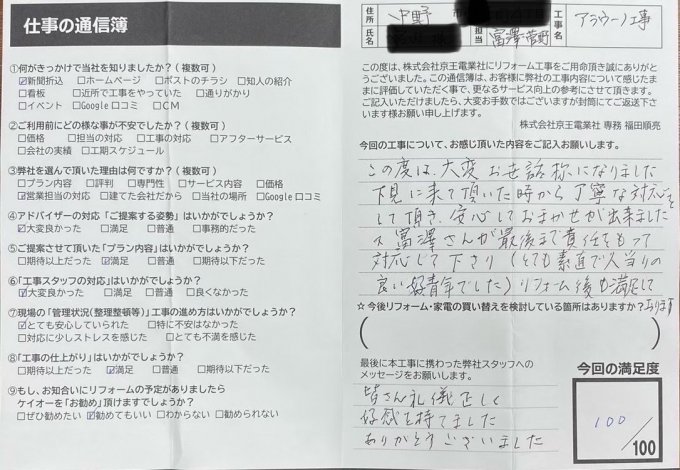 仕事の通信簿
①何がきっかけで当社を知りましたか？(複数可)
☑新聞折込 □ホームページ □ポストのチラシ □知人の紹介
□看板 □近所で工事をやっていた □通りがかり
□イベント □Google口コミ □CM
②ご利用前にどの様な事が不安でしたか？(複数可)
□価格 □担当の対応 □工事の対応 □アフターサービス
□会社の実績 □工期スケジュール
③弊社を選んで頂いた理由は何ですか？(複数可)
□プラン内容 □評判 □専門性 □サービス内容 □価格
☑営業担当の対応 □建てた会社だから □当社の場所 □Google口コミ
④アドバイザーの対応「ご提案する姿勢」はいかがでしょうか？
☑大変良かった □満足 □普通 □事務的だった
⑤ご提案させて頂いた「プラン内容」はいかがでしょうか？
□期待以上だった ☑満足 □普通 □期待以下だった
⑥「工事スタッフの対応」はいかがでしょうか？
☑大変良かった □満足 □普通 □良くなかった
⑦現場の「管理状況(整理整頓等)」工事の進め方はいかがでしょうか？
☑とても安心していられた □特に不安はなかった
□対応に少しストレスを感じた □とても不満を感じた
⑧「工事の仕上がり」はいかがでしょうか？
□期待以上だった ☑満足 □普通 □期待以下だった
⑨もし、お知合いにリフォームの予定がありましたら
ケイオーを「お勧め」頂けますでしょうか？
□ぜひ勧めたい ☑勧めてもいい □わからない □勧められない
住所 中野
氏名
担当 富澤・菅野
工事名 アラウーノ工事
この度は、株式会社京王電業社にリフォーム工事をご用命頂き誠にありがと
うございました。この通信簿は、お客様に弊社の工事内容について感じたま
まに評価していただく事で、更なるサービス向上の参考にさせて頂きます。
ご記入いただけましたら、大変お手数ではございますが封筒にてご返送下さ
います様お願い申し上げます。
株式会社京王電業社 専務 福田順亮
今回の工事について、お感じ頂いた内容をご記入お願いします。
この度は、大変お世話様になりました
下見に来て頂いた時から丁寧な対応を
して頂き、安心しておまかせが出来ました
又富澤さんが最後まで責任をもって
対応して下さり(とても素直で人当りの
良い好青年でした)リフォーム後も満足して
おります
☆今後リフォーム・家電の買い替えを検討している箇所はありますか？
最後に本工事に携わった弊社スタッフへの
メッセージをお願いします。
皆さん礼儀正しく
好感を持てました
ありがとうございました
今回の満足度
100
/100